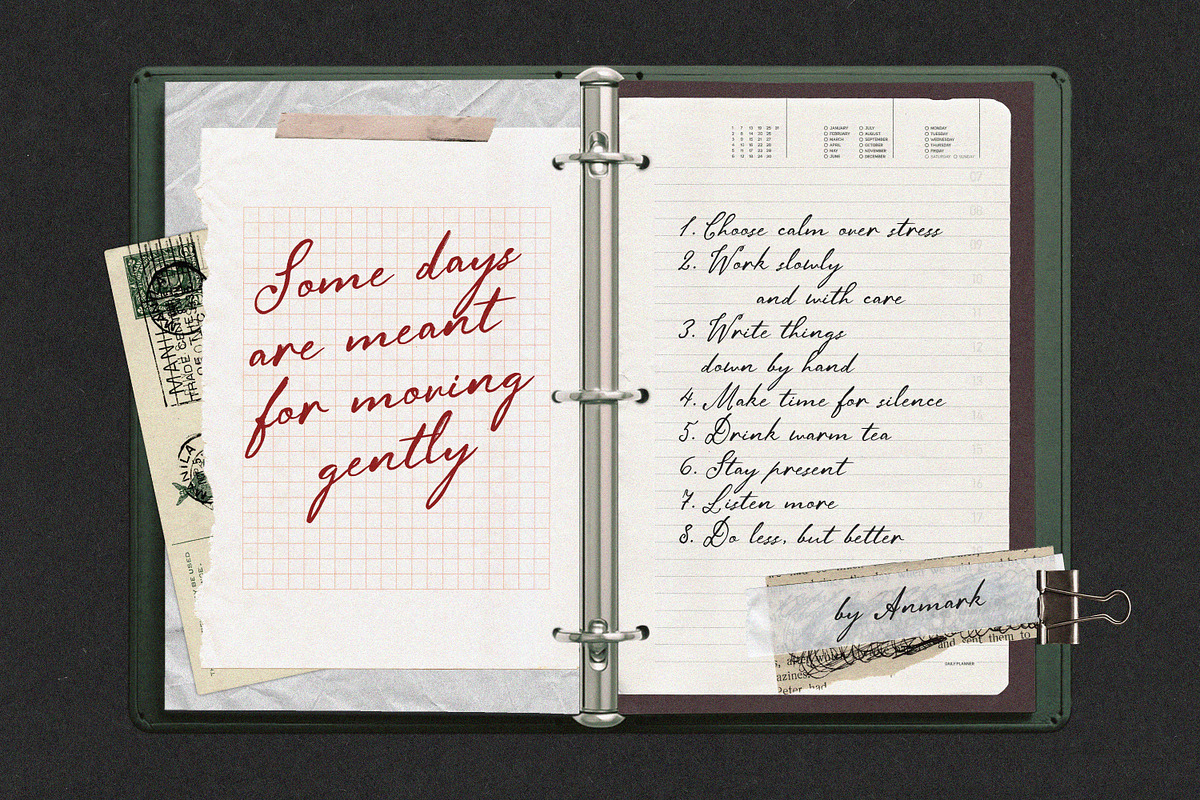 Some days
are meant
for moving
gently
MANILA
TRADE
NILA
BE USED
1 7 13 19 25 31
2 8 14 20 26
3 9 15 21 27
4 10 16 22 28
5 11 17 23 29
6 12 18 24 30
JANUARY JULY
FEBRUARY AUGUST
MARCH SEPTEMBER
APRIL OCTOBER
MAY NOVEMBER
JUNE DECEMBER
MONDAY
TUESDAY
WEDNESDAY
THURSDAY
FRIDAY
SATURDAY SUNDAY
07
08
09
10
11
12
15
16
17
1. Choose calm over stress
2. Work slowly
and with care
3. Write things
down by hand
4. Make time for silence
5. Drink warm tea
6. Stay present
7. Listen more
8. Do less, but better
by Anmark
and sent them to
azines
Peter had
DAILY PLANNER